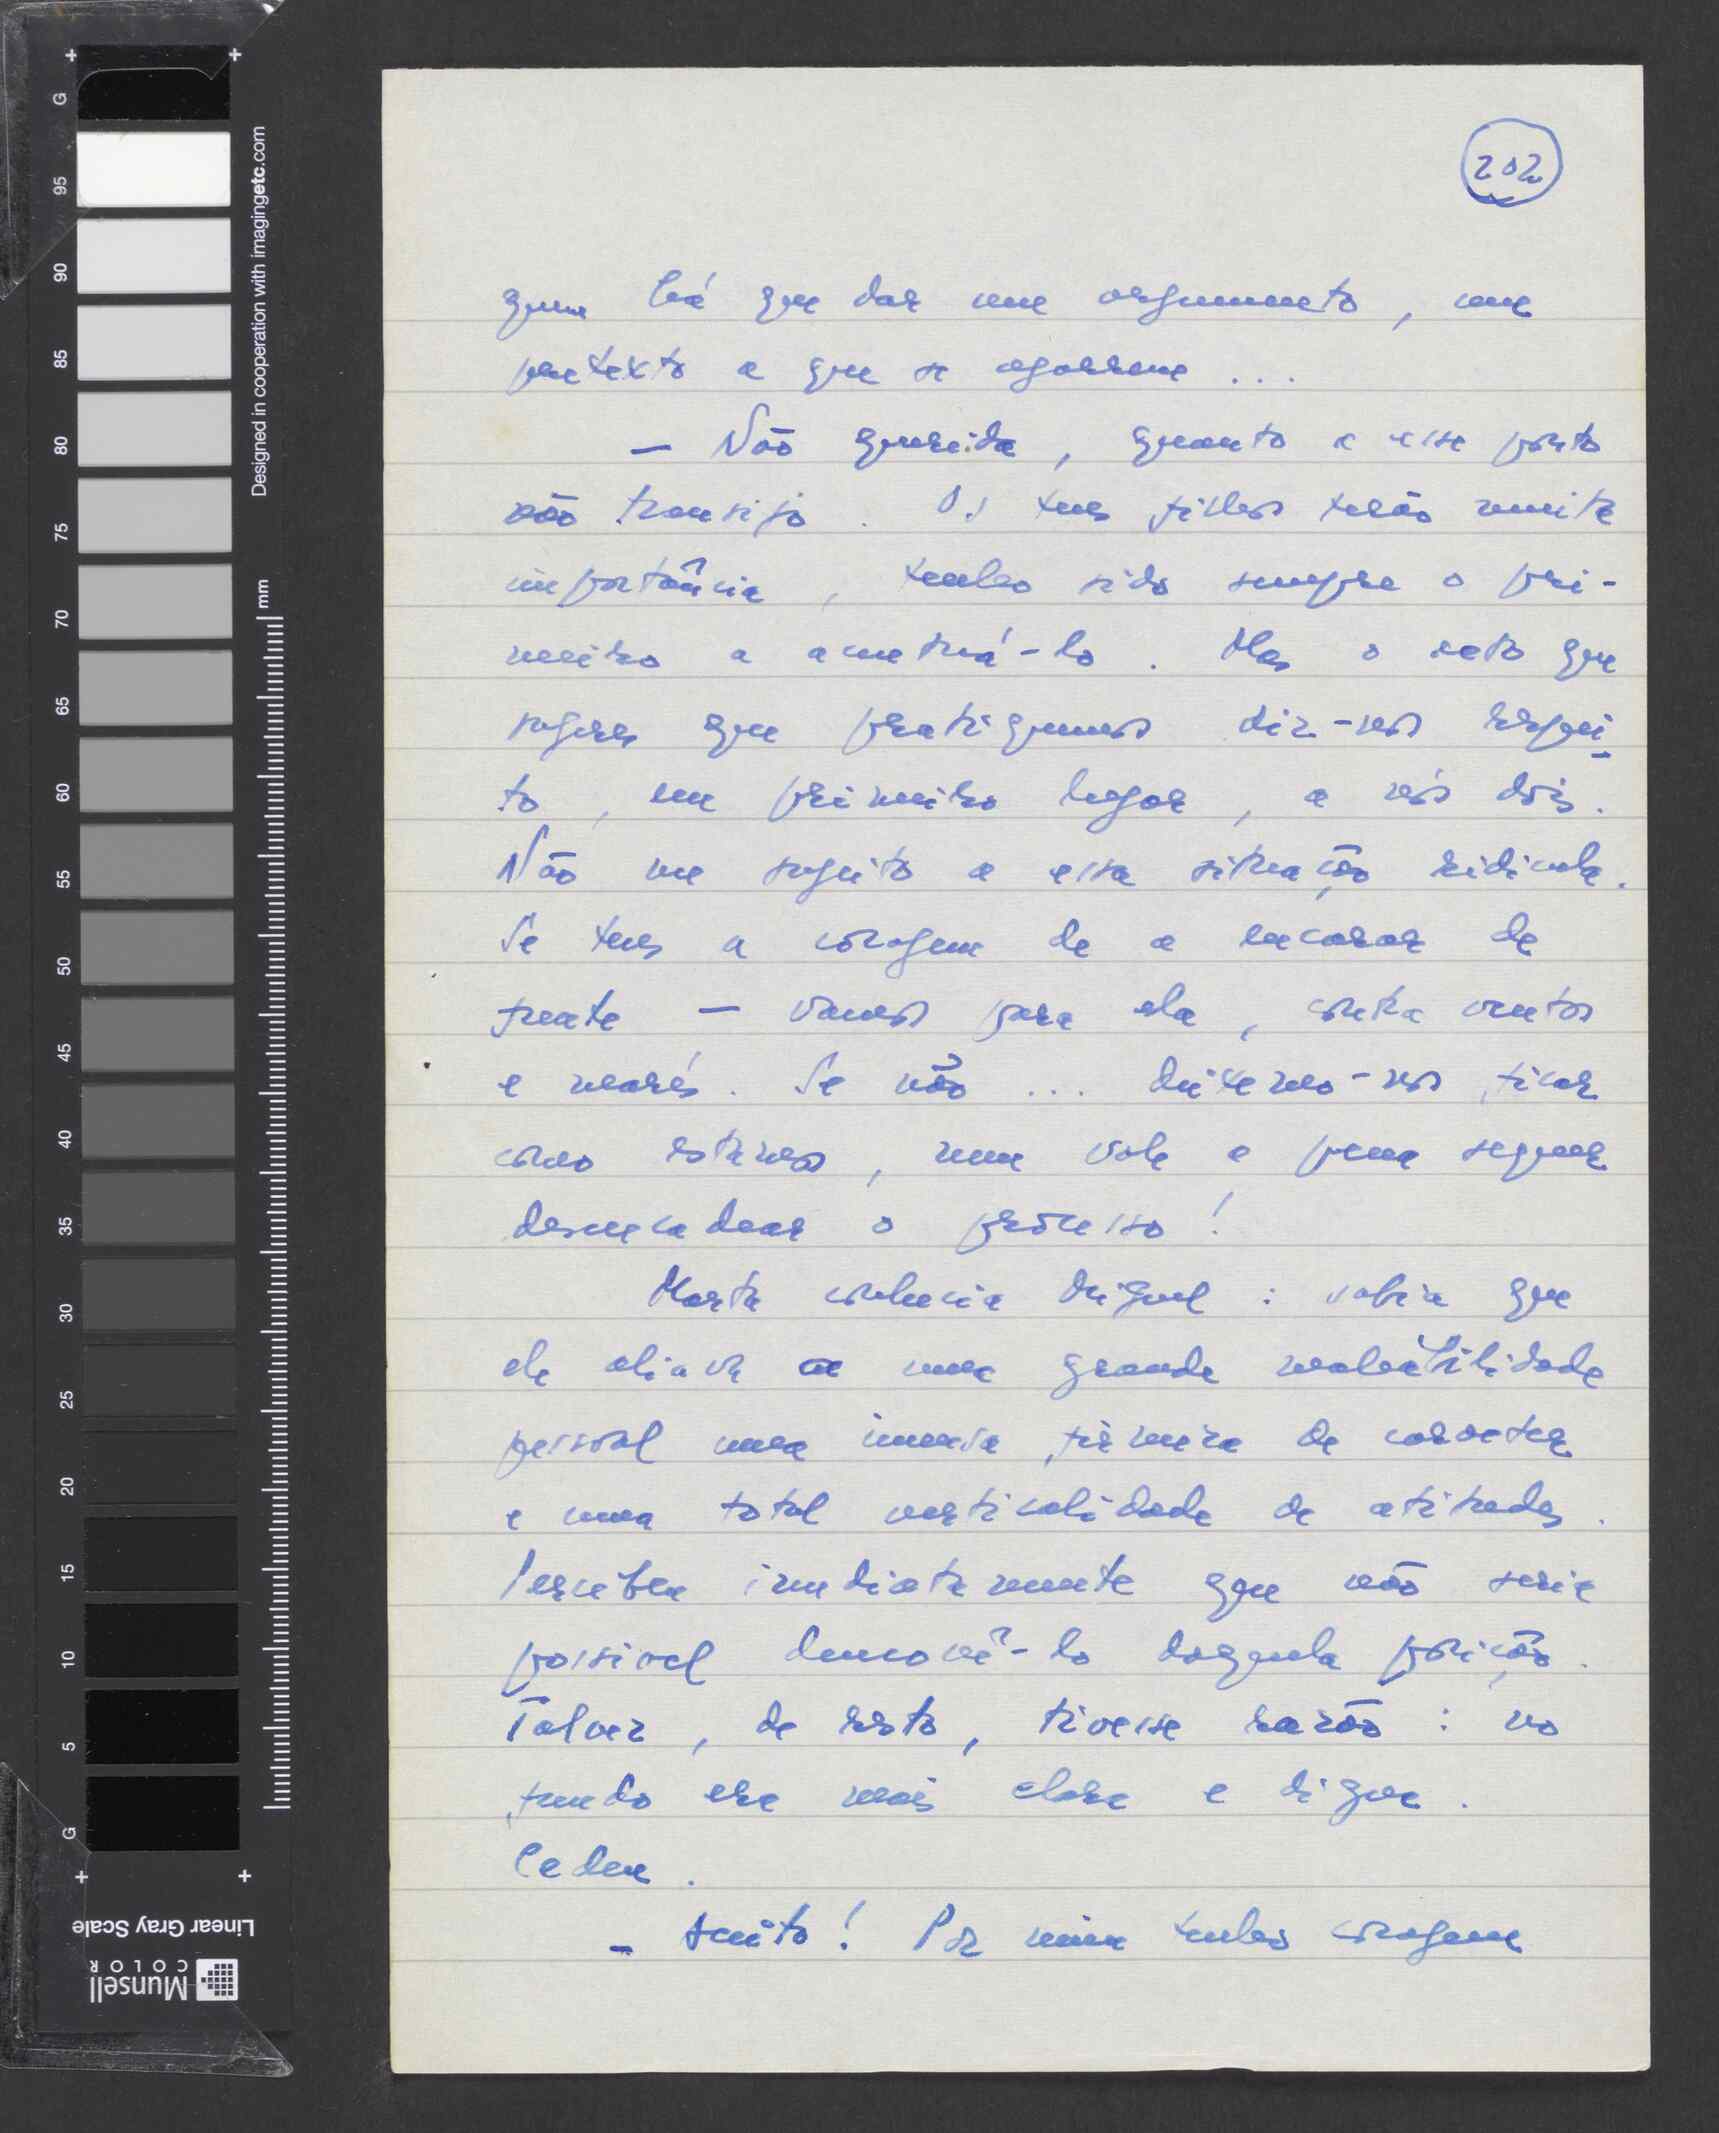 202
quem há que dar um argumento, um
pretexto a que se agarrem ...
— Não querida, quanto a esse ponto
não transijo. Os teus filhos terão muita
importância, tenho sido sempre o pri-
meiro a acentuá-lo. Mas o acto que
sugeres que pratiquemos diz-nos respei-
to, em primeiro lugar, a nós dois.
Não me sujeito a essa situação ridícula.
Se tens a coragem de a encarar de
frente — vamos para ela, contra ventos
e marés. Se não ... deixemo-nos ficar
como estamos, nem vale a pena sequer
desencadear o processo!
Marta conhecia Miguel: sabia que
ele aliava a uma grande maleabilidade
pessoal uma imensa firmeza de caracter
e uma total verticalidade de atitudes.
Percebeu imediatamente que não seria
possível demovê-lo daquela posição.
Talvez, de resto, tivesse razão: no
fundo era mais clara e digna.
Cedeu.
— Aceito! Por mim tenho coragem
Designed in cooperation with imagingetc.com
mm
G 95 90 85 80 75 70 65 60 55 50 45 40 35 30 25 20 15 10 5 G
Linear Gray Scale
Munsell
COLOR